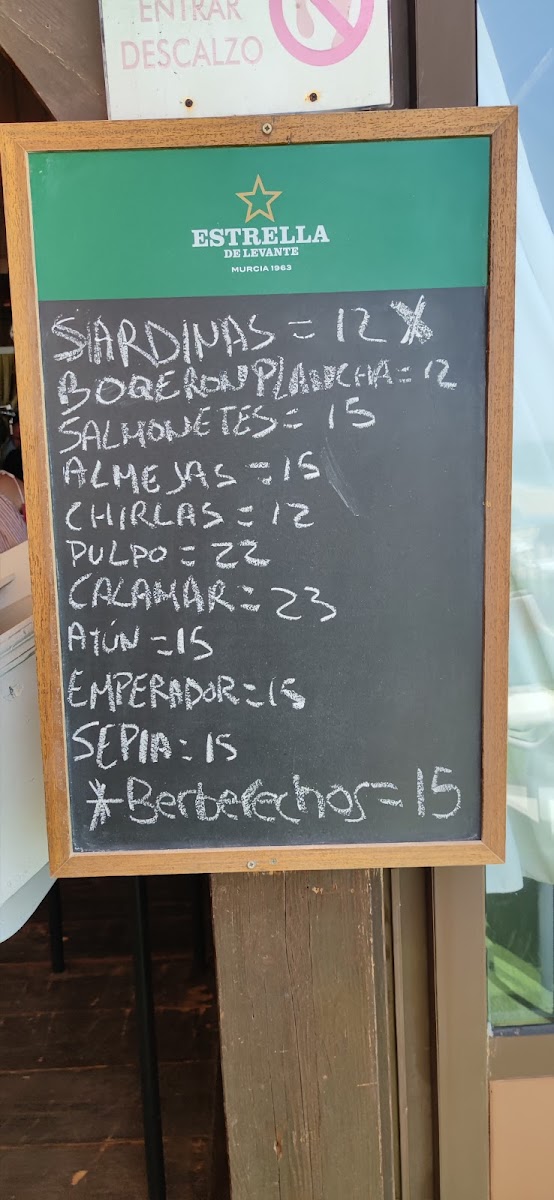 ENTRAR
DESCALZO
ESTRELLA
DE LEVANTE
MURCIA 1963
SARDINAS = 12 X
BOQERON PLANCHA = 12
SALMONETES = 15
ALMEJAS = 15
CHIRLAS = 12
PULPO = 22
CALAMAR = 23
ATÚN = 15
EMPERADOR = 15
SEPIA = 15
* Berberechos = 15